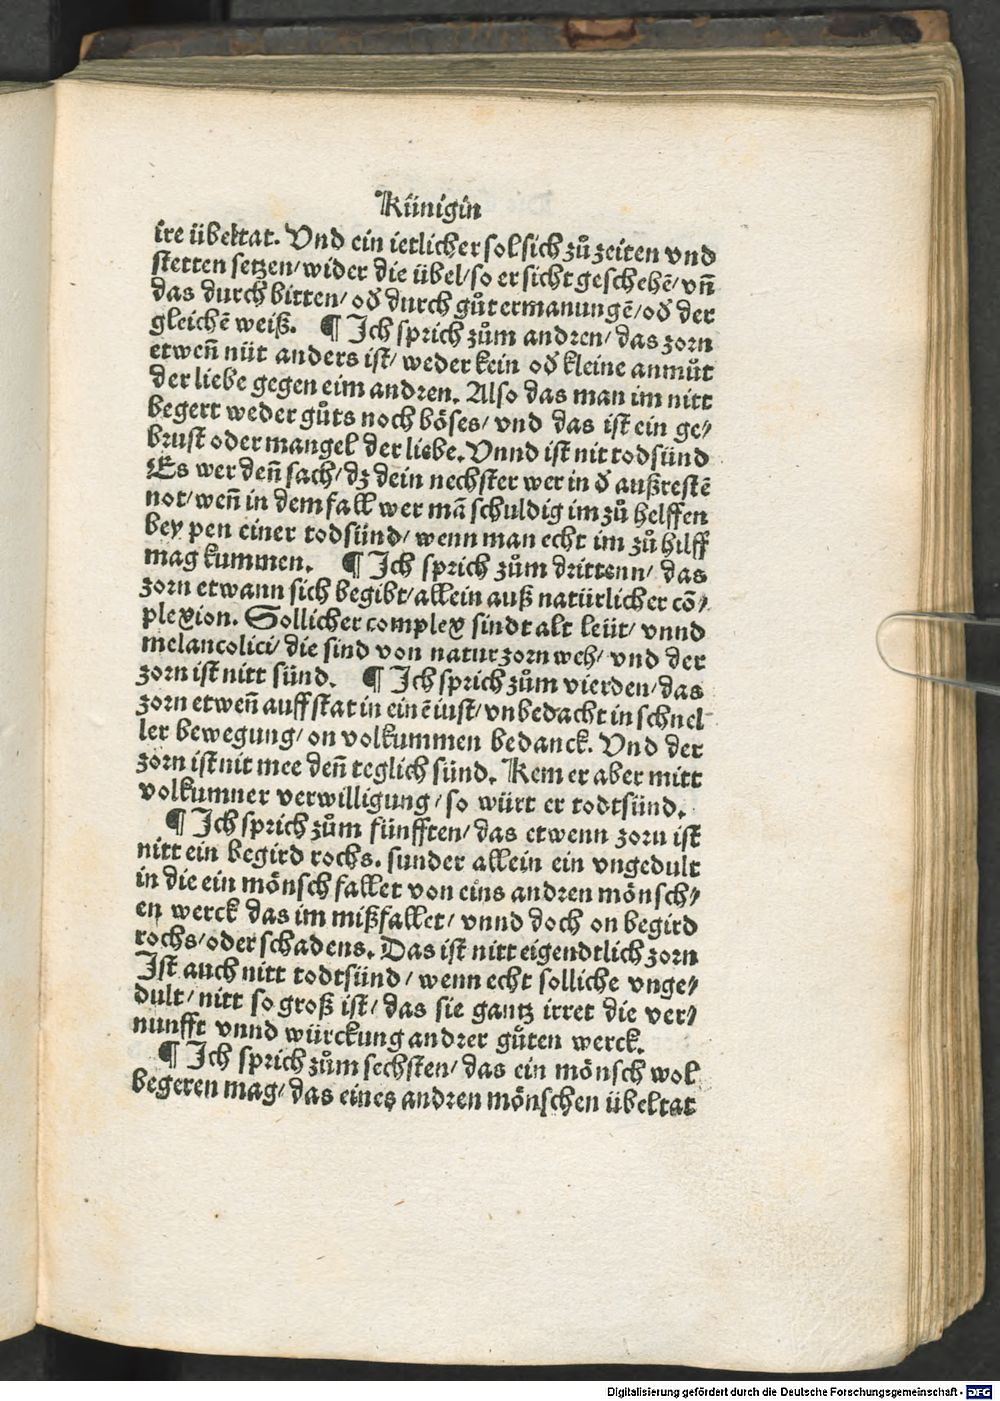 Künigin
ire übeltat. Vnd ein ietlicher sol sich zuͦ zeiten vnd
stetten setzen/ wider die übel/ so er sicht geschehẽ/ vñ
das durch bitten/ oď durch guͦt ermanungẽ/ oď der
gleichẽ weiß. ¶ Ich sprich zuͦm andren/ das zorn
etweñ nüt anders ist/ weder kein oď kleine anmuͦt
der liebe gegen eim andren. Also das man im nitt
begert weder guͦts noch böses/ vnd das ist ein ge/
brust oder mangel der liebe. Vnnd ist nit todsünd
Es wer deñ sach/ dz dein nechster wer in ď außrestẽ
not/ weñ in dem fall wer mã schuldig im zuͦ helffen
bey pen einer todsünd/ wenn man echt im zuͦ hilff
mag kummen. ¶ Ich sprich zuͦm drittenn/ das
zorn etwann sich begibt/ allein auß natürlicher cõ/
plexion. Sollicher complex sindt alt leüt/ vnnd
melancolici/ die sind von natur zorn weh/ vnd der
zorn ist nitt sünd. ¶ Ich sprich zuͦm vierden/ das
zorn etweñ auff stat in einẽ iust/ vnbedacht in schnel
ler bewegung/ on volkummen bedanck. Vnd der
zorn ist nit mee deñ teglich sünd. Kem er aber mitt
volkumner verwilligung/ so würt er todtsünd.
¶ Ich sprich zuͦm fünfften/ das etwenn zorn ist
nitt ein begird rochs. sunder allein ein vngedult
in die ein mönsch fallet von eins andren mönsch/
en werck das im mißfallet/ vnnd doch on begird
rochs/ oder schadens. Das ist nitt eigendtlich zorn
Ist auch nitt todtsünd/ wenn echt solliche vnge/
dult/ nitt so groß ist/ das sie gantz irret die ver/
nunfft vnnd würckung andrer guͦten werck.
¶ Ich sprich zuͦm sechsten/ das ein mönsch wol
begeren mag/ das eines andren mönschen übeltat
Digitalisierung gefördert durch die Deutsche Forschungsgemeinschaft - DFG